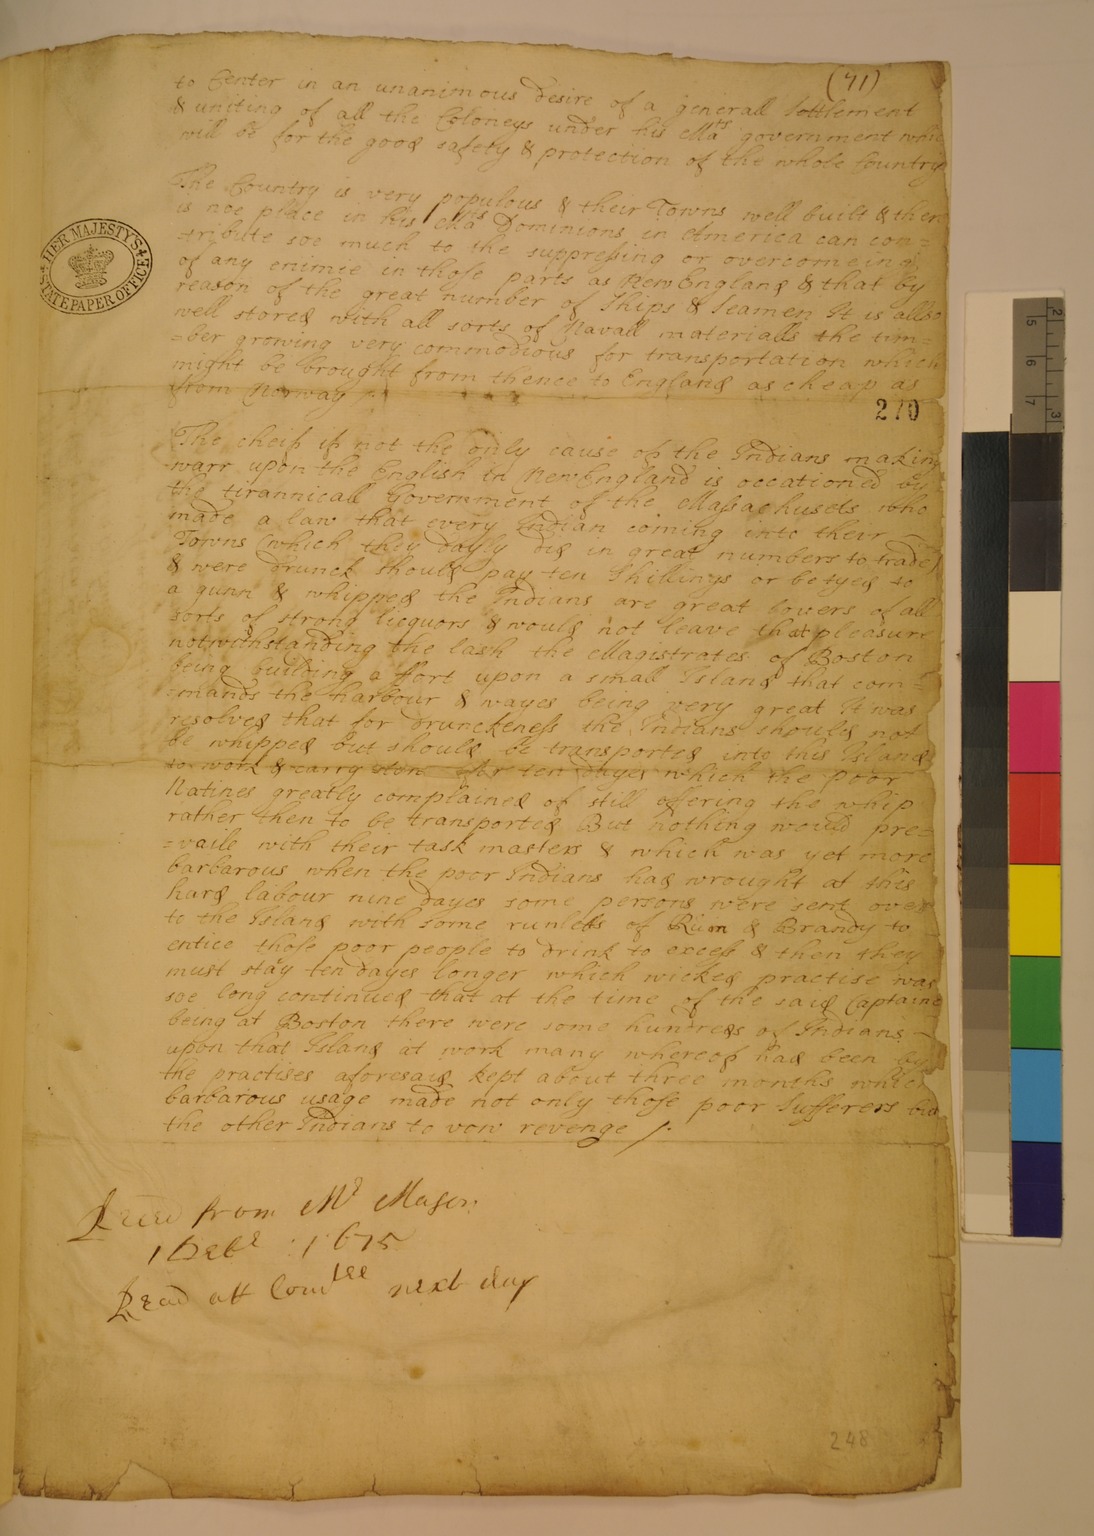 (71)
to Center in an unanimous desire of a generall Settlement
& uniting of all the Coloneys under his Ma.ts government which
will be for the good safety & protection of the whole Country
The Country is very populous & their Towns well built & there
is noe place in his Ma.ts Dominions in America can con=
=tribute soe much to the suppressing or overcomeing
of any enimie in those parts as New England & that by
reason of the great number of Ships & Seamen It is allso
well stored with all sorts of Navall materialls the tim=
=ber growing very commodious for transportation which
might be brought from thence to England as cheap as
from Norway /.
270
The cheif if not the only cause of the Indians making
warr upon the English in New England is occationed by
the tirannicall Government of the Massachusets who
made a law that every Indian coming into their
Towns (which they dayly did in great numbers to trade)
& were drunck should pay ten Shillings or be tyed to
a gunn & whipped the Indians are great lovers of all
sorts of strong licquors & would not leave that pleasure
notwithstanding the lash the Magistrates of Boston
being building a ffort upon a small Island that com=
=mands the harbour & wayes being very great It was
resolved that for drunckeness the Indians should not
be whipped but should be transported into this Island
to work & carry ston for ten dayes which the poor
Natives greatly complained of still offering the whip
rather then to be transported But nothing would pre=
=vaile with their task masters & which was yet more
barbarous when the poor Indians had wrought at this
hard labour nine dayes some persons were sent over
to the Island with some runletts of Rum & Brandy to
entice those poor people to drink to excess & then they
must stay ten dayes longer which wicked practise was
soe long continued that at the time of the said Captaine
being at Boston there were some hundreds of Indians
upon that Island at work many whereof had been by
the practises aforesaid kept about three months which
barbarous usage made not only those poor Sufferers but
the other Indians to vow revenge /.
from Mr Mason
1 Decbr : 1675
Read att Comtee next day
HER MAJESTY'S
STATE PAPER OFFICE
248
2
5
6
7
3